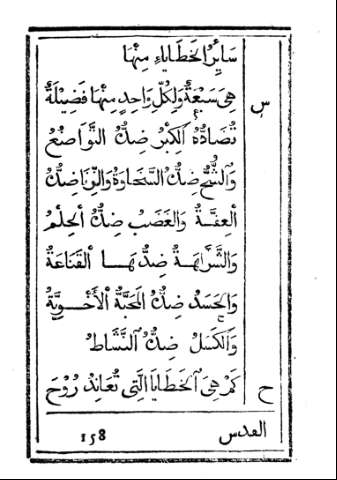 سَائِرُ الْخَطَايَاءِ مِنْهَا
س هِيَ سَبْعَةٌ وَلِكُلِّ وَاحِدٍ مِنْهَا فَضِيْلَةٌ
تُضَادُّهُ أَلْكِبْرُ ضِدُّهُ التَّوَاضُعُ
وَالشُّحُّ ضِدُّهُ السَّخَاوَةُ وَالزِّنَا ضِدُّهُ
ألْعِفَّةُ وَالْغَضَبُ ضِدُّهُ ألْحِلْمُ
وَالشَّرَاهَةُ ضِدُّهَا ألْقَنَاعَةُ
وَالْحَسَدُ ضِدُّهُ الْمَحَبَّةُ الْأَخَوِيَّةُ
وَالْكَسَلُ ضِدُّهُ النَّشَاطُ
ح كَمْ هِيَ الْخَطَايَا الَّتِي تُعَانِدُ رُوْحَ
القدس
158